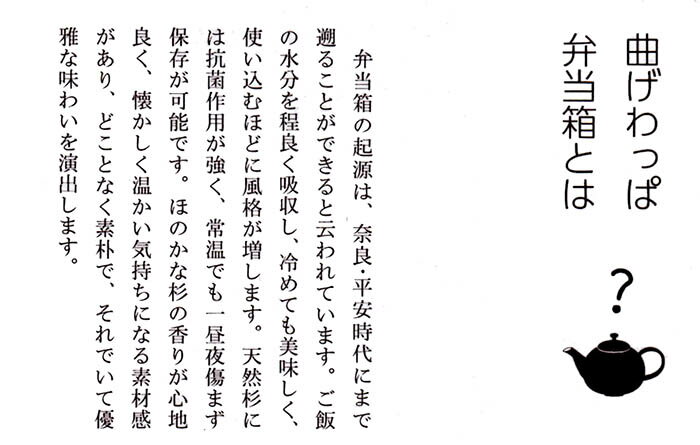 曲げわっぱ
弁当箱とは
?
弁当箱の起源は、奈良・平安時代にまで
遡ることができると云われています。ご飯
の水分を程良く吸収し、冷めても美味しく、
使い込むほどに風格が増します。天然杉に
は抗菌作用が強く、常温でも一昼夜傷まず
保存が可能です。ほのかな杉の香りが心地
良く、懐かしく温かい気持ちになる素材感
があり、どことなく素朴で、それでいて優
雅な味わいを演出します。